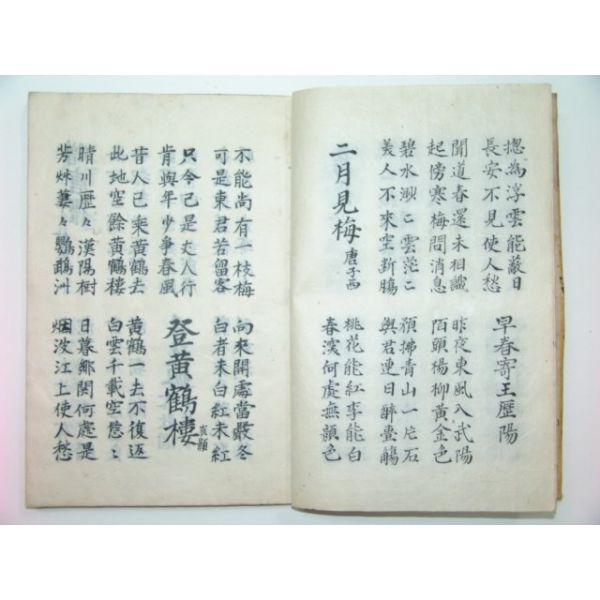 摠為浮雲能蔽日
長安不見使人愁
早春寄王歷陽
聞道春還未相識
起傍寒梅問消息
昨夜東風入武陽
陌頭楊柳黃金色
碧水渺々雲茫々
美人不來空斷腸
預拂青山一片石
與君連日醉壺觴
二月見梅 唐子西
桃花能紅李能白
春深何處無顏色
不能尚有一枝梅
可是東君苦留客
向來開處當嚴冬
白者未白紅未紅
只今已是丈人行
肯與年少爭春風
登黃鶴樓 崔顥
昔人已乘黃鶴去
此地空餘黃鶴樓
黃鶴一去不復返
白雲千載空悠々
晴川歷々漢陽樹
芳艸萋々鸚鵡洲
日暮鄉関何處是
烟波江上使人愁